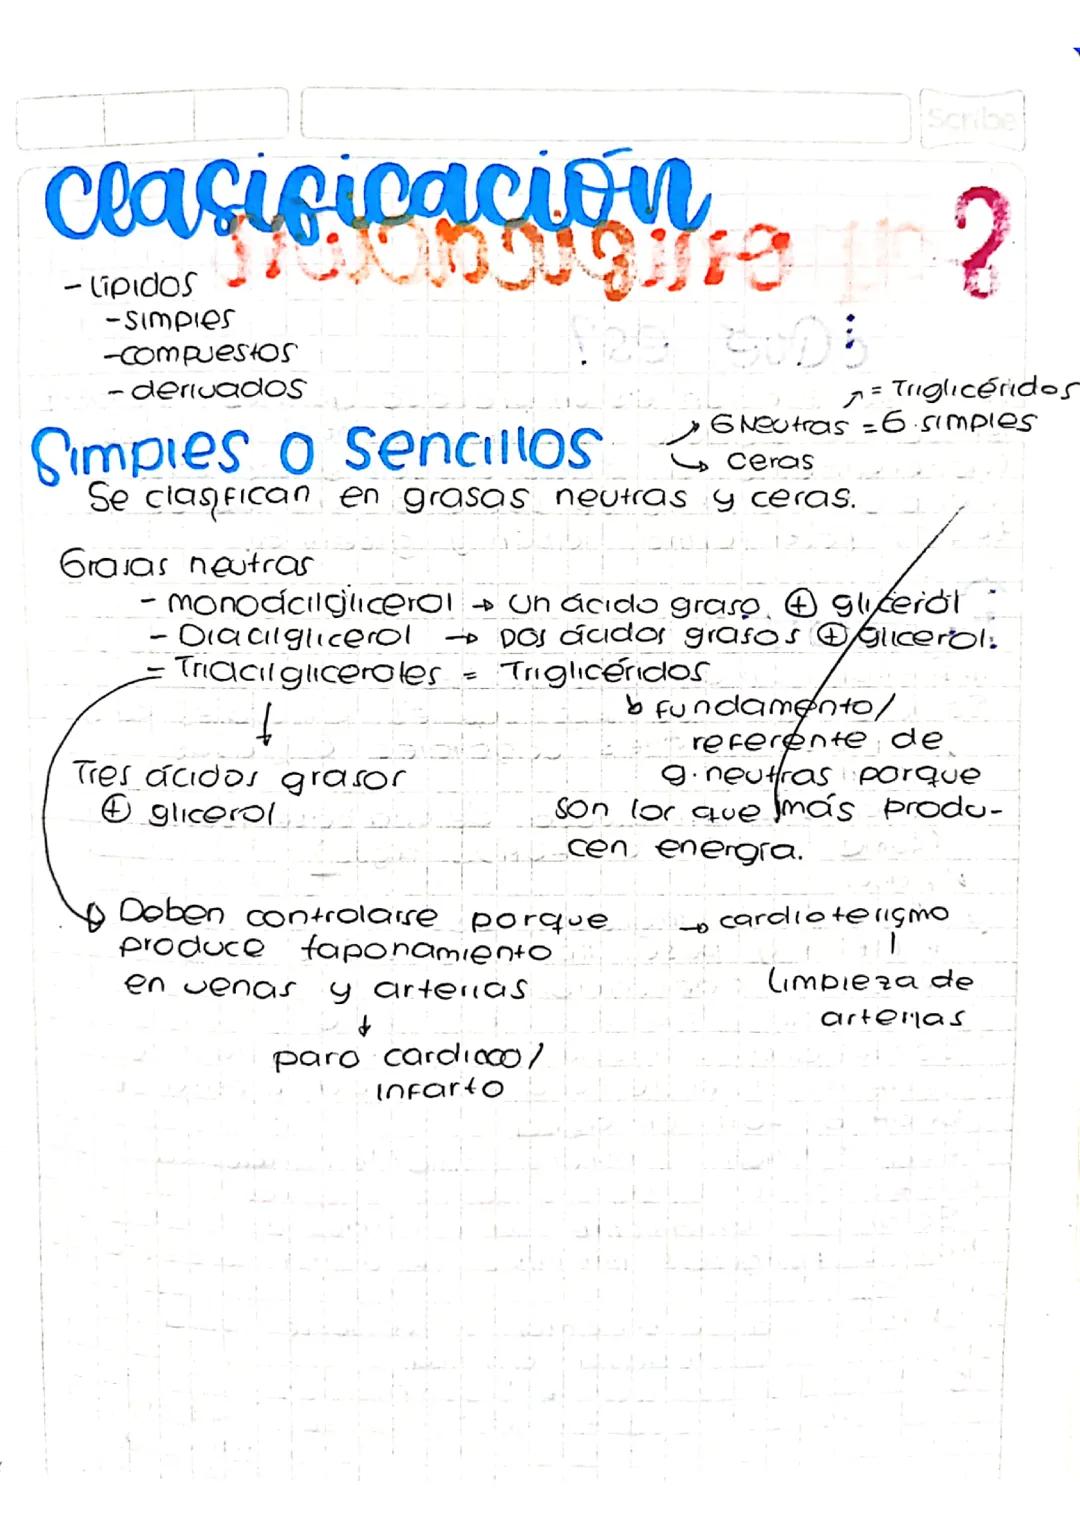 Scribe
Clasificación
?
- lípidos
- simples
- compuestos
- derivados
= Triglicéridos
G Neutras = G. simples
ceras
Simples o sencillos
Se clasifican en grasas neutras y ceras.
Grasas neutras
- monoacilglicerol → Un ácido graso ⊕ glicerol
- Diacilglicerol → Dos ácidos grasos ⊕ glicerol.
= Triacilgliceroles = Triglicéridos
↓ fundamento/
referente de
g. neutras porque
son los que más produ-
cen energía.
Tres ácidos grasos
⊕ glicerol
Deben controlarse porque
produce taponamiento
en venas y arterias
↓
paro cardiaco/
infarto
→ cardioterismo
|
limpieza de
arterias